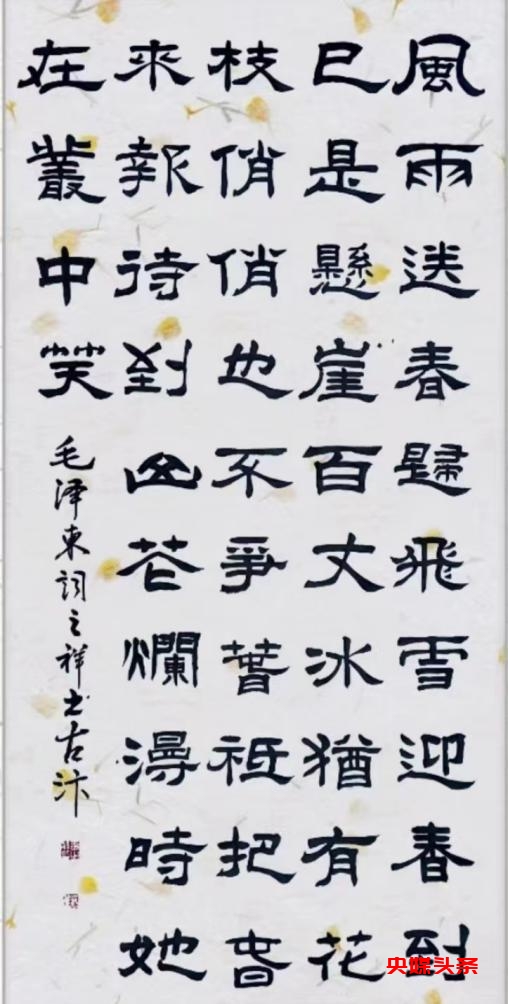 風雨送春歸飛雪迎春到
已是懸崖百丈冰猶有花
枝俏俏也不爭春祇把春
來報待到山花爛漫時她
在叢中笑
毛泽東詞之祥书古汴
央媒头条